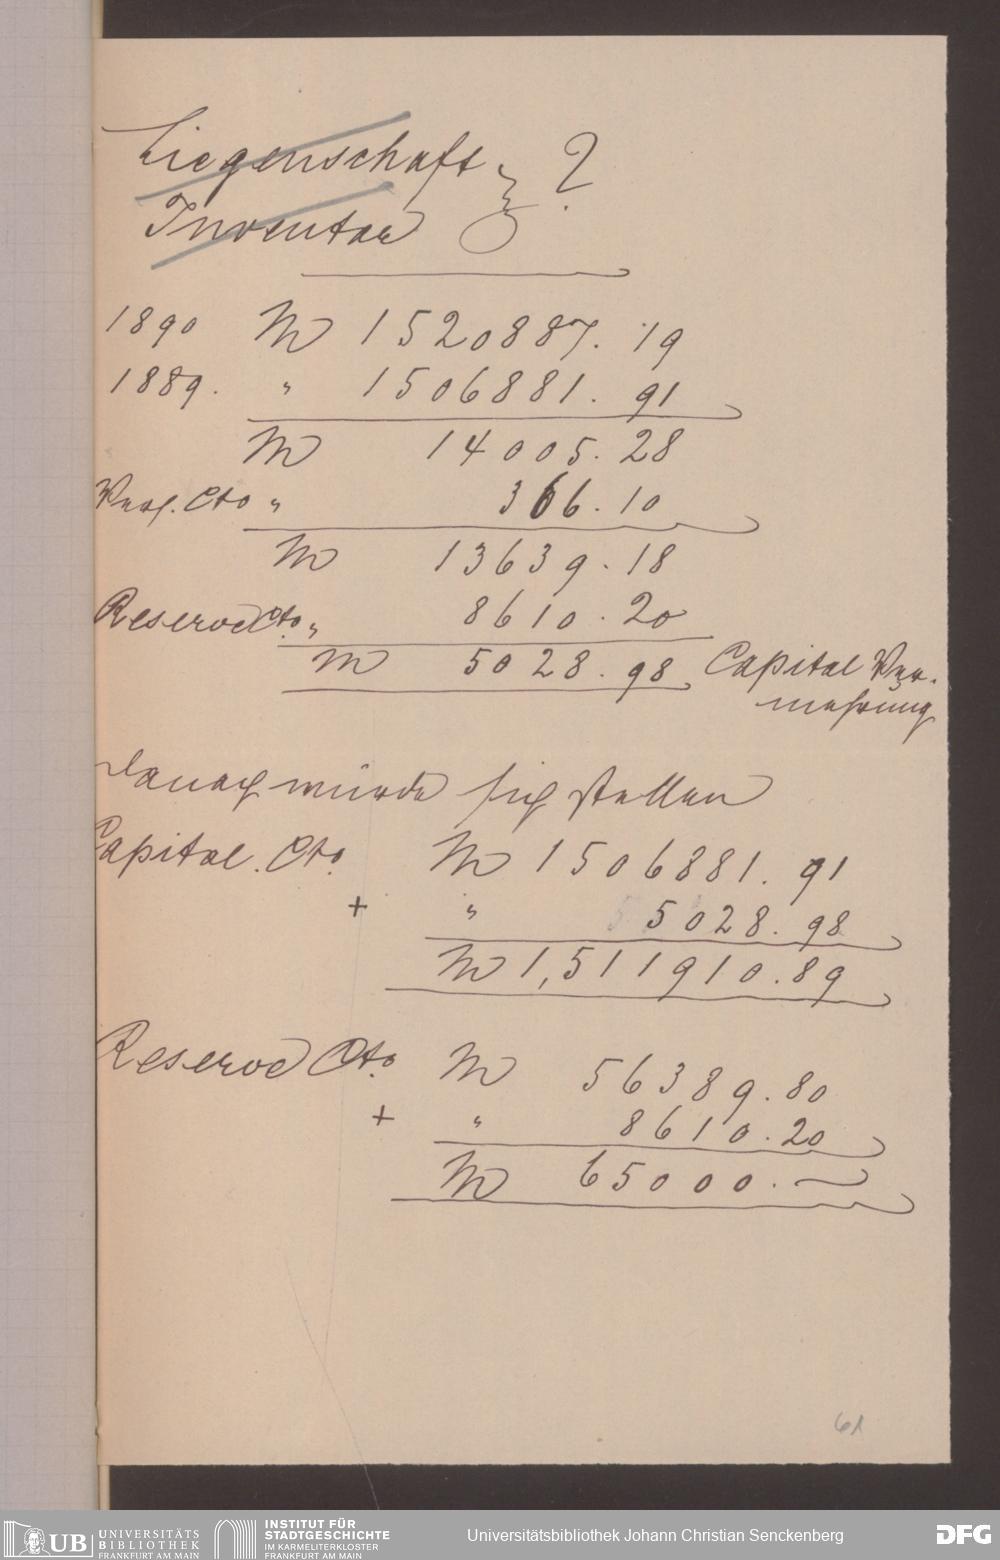 Liegenschaft } ?
Inventar
1890 M 1520887.19
1889. " 1506881.91
M 14005.28
Cto " 366.10
M 13639.18
Reserve Cto. " 8610.20
M 5028.98 Capital Ver-
mehrung
Danach würde sich stellen
Capital. Cto. M 1506881.91
+ " 5028.98
M 1,511910.89
Reserve Cto. M 56389.80
+ " 8610.20
M 65000.—
61
UB UNIVERSITÄTS
BIBLIOTHEK
FRANKFURT AM MAIN
INSTITUT FÜR
STADTGESCHICHTE
IM KARMELITERKLOSTER
FRANKFURT AM MAIN
Universitätsbibliothek Johann Christian Senckenberg
DFG